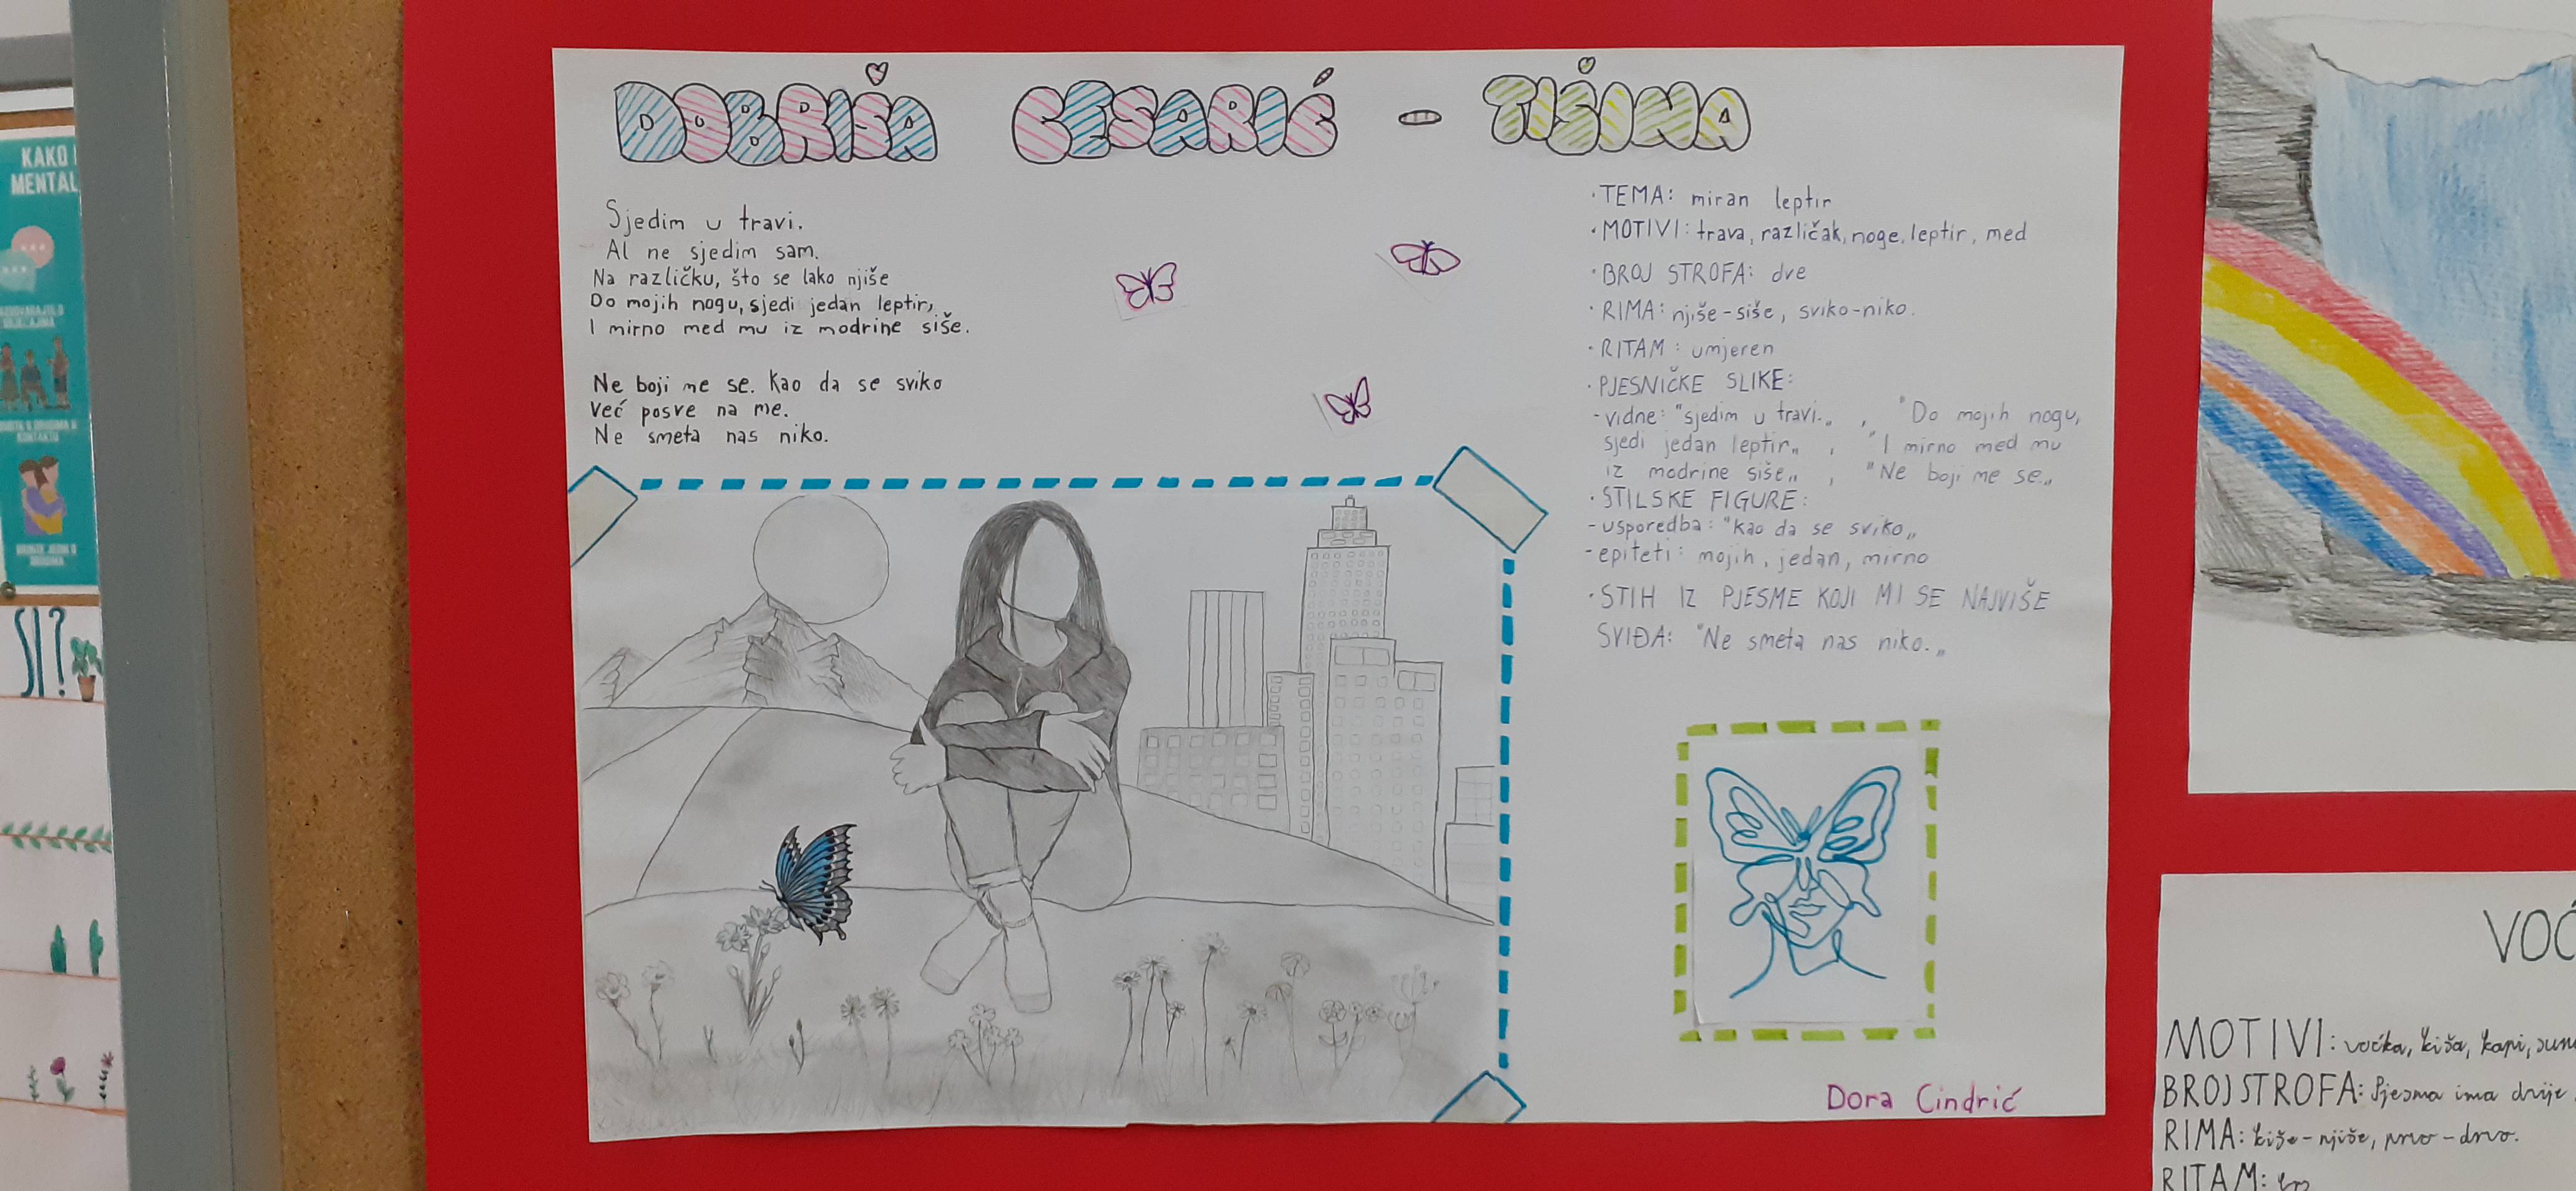 KAKO
MENTAL
SI?
DOBRIŠA CESARIĆ - TIŠINA
Sjedim u travi.
Al ne sjedim sam.
Na različku, što se lako njiše
Do mojih nogu, sjedi jedan leptir,
I mirno med mu iz modrine siše.
Ne boji me se. Kao da se sviko
Već posve na me.
Ne smeta nas niko.
· TEMA: miran leptir
· MOTIVI: trava, različak, noge, leptir, med
· BROJ STROFA: dve
· RIMA: njiše-siše, sviko-niko.
· RITAM: umjeren
· PJESNIČKE SLIKE:
- vidne: "sjedim u travi.„ , "Do mojih nogu,
sjedi jedan leptir„ , "I mirno med mu
iz modrine siše„ , "Ne boji me se„
· STILSKE FIGURE:
- usporedba: "kao da se sviko„
- epiteti: mojih, jedan, mirno
· STIH IZ PJESME KOJI MI SE NAJVIŠE
SVIĐA: "Ne smeta nas niko.„
Dora Cindrić
VOĆ
MOTIVI: voćka, kiša, kapi,
BROJ STROFA: Pjesma ima dvije
RIMA: kiše-njiše, prvo-drvo.
RITAM: